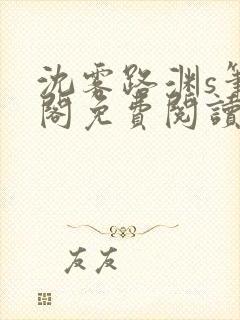 沈霧路渊s筆
閣免費閱讀
友友